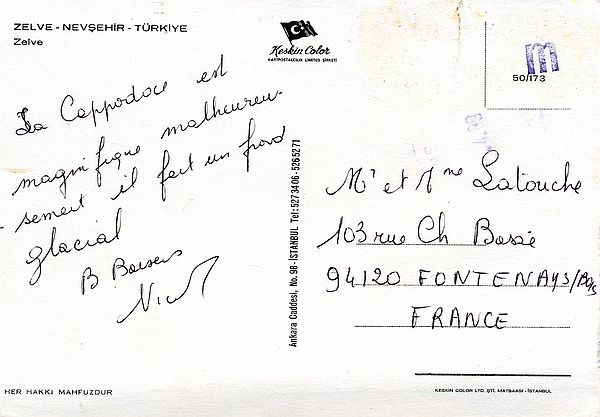 ZELVE - NEVŞEHİR - TÜRKİYE
Zelve
Keskin Color
KARTPOSTALCILIK LIMITED ŞİRKETİ
m
50/173
La Cappadoce est
magnifique malheureu-
sement il fait un froid
glacial
B Baisers
Ankara Caddesi, No. 98 - İSTANBUL Tel: 527 34 06 - 526 52 71
Mr et Mme Latouche
103 rue Ch Bassé
94120 FONTENAY S/Bois
FRANCE
HER HAKKI MAHFUZDUR
KESKİN COLOR LTD. ŞTİ. MATBAASI - İSTANBUL